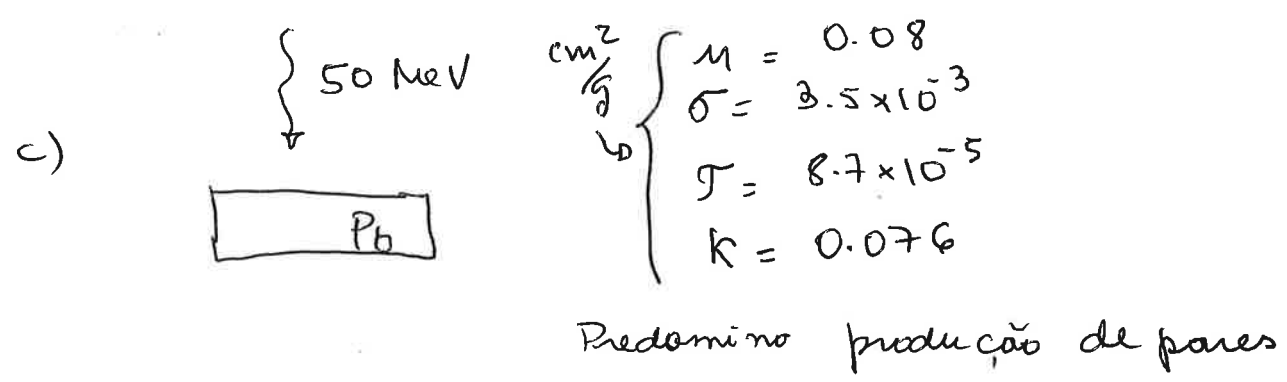 c)
50 MeV
Pb
cm²/g
μ = 0.08
σ = 3.5×10⁻³
τ = 8.7×10⁻⁵
K = 0.076
Predomino produção de pares